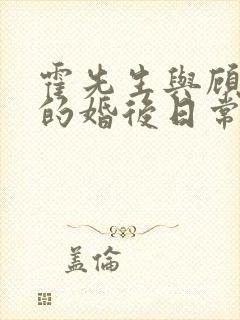 霍先生與顾
的婚後日常
盖倫